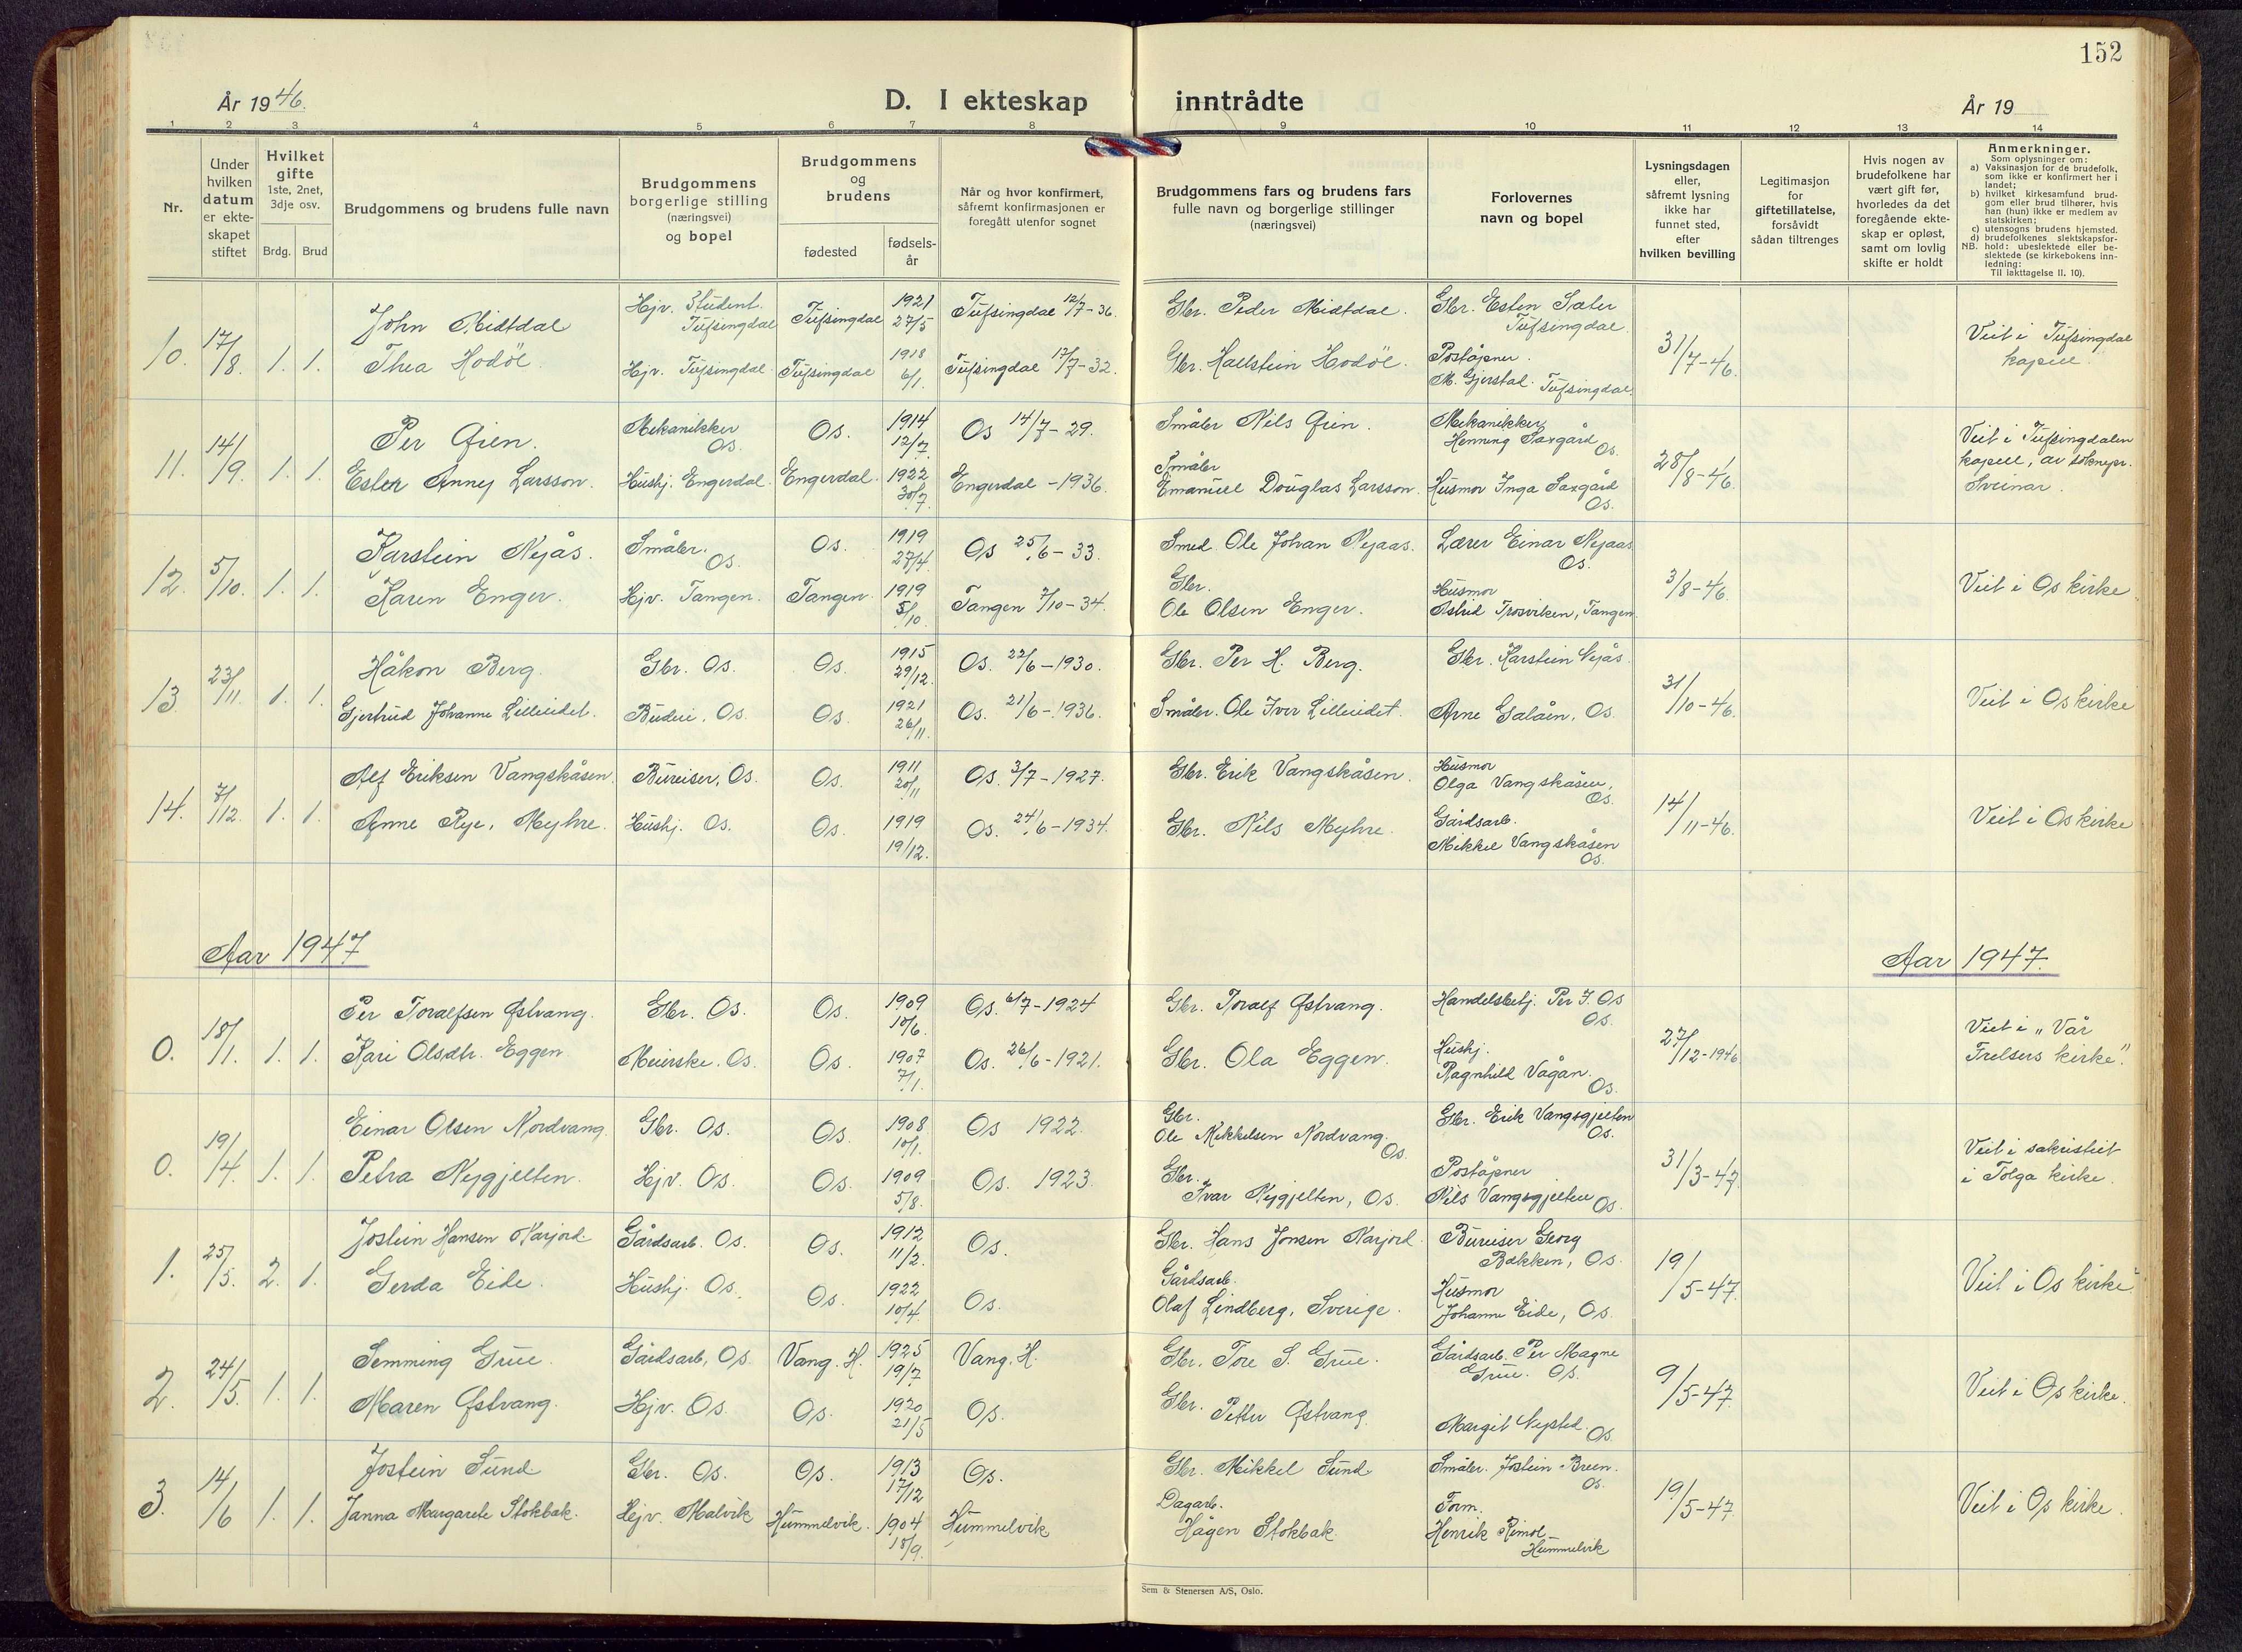 152
År 1946.
D. I ekteskap inntrådte
År 19
1 2 3 4 5 6 7 8 9 10 11 12 13 14
Nr.
Under
hvilken
datum
er ekte-
skapet
stiftet
Hvilket
gifte
1ste, 2net,
3dje osv.
Brdg. Brud
Brudgommens og brudens fulle navn
Brudgommens
borgerlige stilling
(næringsvei)
og bopel
Brudgommens
og
brudens
fødested
fødsels-
år
Når og hvor konfirmert,
såfremt konfirmasjonen er
foregått utenfor sognet
Brudgommens fars og brudens fars
fulle navn og borgerlige stillinger
(næringsvei)
Forlovernes
navn og bopel
Lysningsdagen
eller,
såfremt lysning
ikke har
funnet sted,
efter
hvilken bevilling
Legitimasjon
for
giftetillatelse,
forsåvidt
sådan tiltrenges
Hvis nogen av
brudefolkene har
vært gift før,
hvorledes da det
foregående ekte-
skap er opløst,
samt om lovlig
skifte er holdt
Anmerkninger.
Som oplysninger om:
a) Vaksinasjon for de brudefolk,
som ikke er konfirmert her i
landet;
b) hvilket kirkesamfund brud-
gom eller brud tilhører, hvis
han (hun) ikke er medlem av
statskirken;
c) utensogns brudens hjemsted.
d) brudefolkenes slektskapsfor-
NB. hold: ubeslektede eller be-
slektede (se kirkebokens inn-
ledning:
Til iakttagelse II. 10).
10. 17/8. 1. 1.
John Midtdal
Hjv. Student.
Tufsingdal
Tufsingdal
1921
27/5
Tufsingdal 12/7-36.
Gbr. Peder Midtdal.
Gbr. Esten Sæter
Tufsingdal.
31/7-46.
Viet i Tufsingdal
kapell.
Thea Hodöl.
Hjv. Tufsingdal.
Tufsingdal
1918
6/1.
Tufsingdal 17/7-32.
Gbr. Hallstein Hodöl.
Poståpner.
M. Gjerstal. Tufsingdal.
11. 14/9. 1. 1.
Per Øien.
Mekanikker
Os.
Os.
1914
12/7.
Os 14/7-29.
Småbr Nils Øien.
Mekanikker
Henning Saxgård
Os.
28/8-46.
Viet i Tufsingdalen
kapell, av soknepr.
Sveinar.
Ester Anny Larsson.
Hushj. Engerdal.
Engerdal.
1922
30/7.
Engerdal -1936.
Småbr
Emanuel Douglas Larsson.
Husmor Inga Saxgård
Os.
12. 5/10. 1. 1.
Karstein Nyås.
Småbr.
Os.
Os.
1919
27/4.
Os 25/6-33.
Smed. Ole Johan Nyaas.
Lærer Einar Nyaas
Os.
3/8-46.
Viet i Os kirke.
Karen Enger.
Hjv. Tangen.
Tangen.
1919
5/10.
Tangen 7/10-34.
Gbr.
Ole Olsen Enger.
Husmor
Astrid Trosviken, Tangen.
13 23/11. 1. 1.
Håkon Berg.
Gbr. Os.
Os.
1915
29/12.
Os. 22/6-1930.
Gbr. Per H. Berg.
Gbr. Karstein Nyås.
31/10-46.
Viet i Os kirke
Gjertrud Johanne Lilleeidet.
Budeie, Os.
Os.
1921
26/11.
Os. 21/6-1936.
Småbr. Ole Iver Lilleeidet.
Arne Galåen, Os.
14. 7/12. 1. 1.
Alf Eriksen Vangskåsen.
Bureiser, Os.
Os.
1911
20/11
Os. 3/7-1927.
Gbr. Erik Vangskåsen.
Husmor
Olga Vangskåsen,
Os.
14/11-46.
Viet i Os kirke
Anne Rye, Myhre.
Hushj. Os.
Os.
1919
19/12.
Os. 24/6-1934.
Gbr. Nils Myhre.
Gårdsarb.
Mikkel Vangskåsen
Os.
Aar 1947
Aar 1947.
0. 18/1. 1. 1.
Per Toralfsen Østvang.
Gbr. Os.
Os.
1909
10/6.
Os. 6/7-1924
Gbr. Toralf Østvang.
Handelsbetj. Per J. Os
Os.
27/12-1946
Viet i „Vår
Frelsers kirke".
Kari Olsdtr. Eggen
Meierske. Os.
Os.
1907
7/1.
Os. 26/6-1921.
Gbr. Ola Eggen.
Hushj.
Ragnhild Vågån.
Os.
0. 19/4. 1. 1.
Einar Olsen Nordvang.
Gbr. Os.
Os.
1908
10/1.
Os 1922.
Gbr.
Ole Mikkelsen Nordvang.
Os.
Gbr. Erik Vangsgjelten
Os.
31/3-47.
Viet i sakristiet
i Tolga kirke.
Petra Nygjelten.
Hjv. Os.
Os.
1909
5/8.
Os. 1923.
Gbr.
Ivar Nygjelten, Os.
Poståpner
Nils Vangsgjelten Os.
1. 25/5. 2. 1.
Jostein Hansen Narjord.
Gårdsarb. Os.
Os.
1912
11/2.
Os.
Gbr. Hans Jonsen Narjord.
Bureiser Georg
Bakken, Os.
19/5-47.
Viet i Os kirke
Gerda Eide.
Hushj. Os.
Os.
1922
10/4.
Os.
Gårdsarb.
Olaf Lindberg, Sverige.
Husmor
Johanne Eide, Os.
2. 24/5. 1. 1.
Semming Grue.
Gårdsarb, Os.
Vang. H.
1925
19/7
Vang. H.
Gbr. Tore S. Grue.
Gårdsarb. Per Magne
Grue. Os.
9/5-47.
Viet i Os kirke.
Maren Østvang.
Hjv. Os.
Os.
1920
21/5
Os.
Gbr.
Petter Østvang.
Margit Nysted.
Os.
3. 14/6 1. 1.
Jostein Sund
Gbr. Os.
Os.
1913
17/12
Os.
Gbr. Mikkel Sund
Småbr. Jostein Breen.
Os.
19/5-47.
Viet i Os kirke.
Janna Margarete Stokbak.
Hjv. Malvik
Hummelvik.
1904
18/9.
Hummelvik
Dagarb.
Hågen Stokbak.
Form.
Henrik Rimol-
Hummelvik
Sem & Stenersen A/S, Oslo.